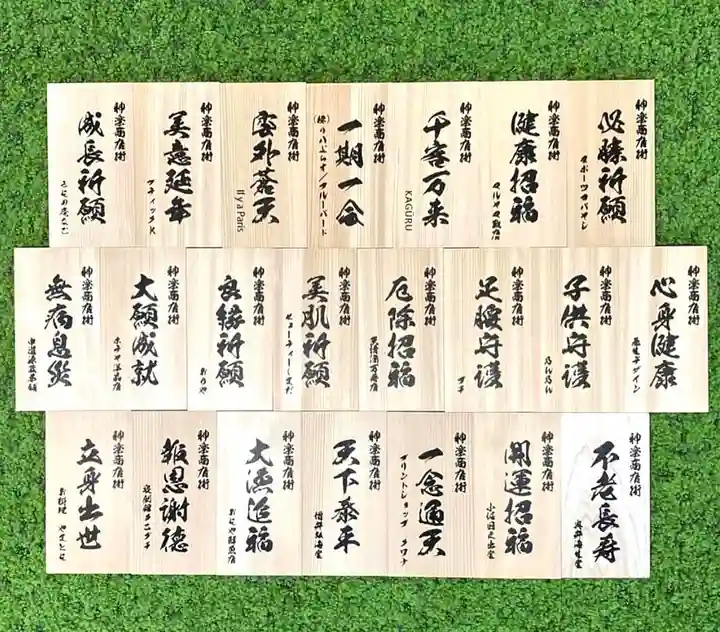 神楽商店街
必勝祈願
スポーツカバヤシ
神楽商店街
健康招福
マルオカ商店
神楽商店街
千客万来
KAGŪRU
神楽商店街
一期一会
神楽商店街
雲外蒼天
Il y a Paris
神楽商店街
美意延年
ブティックK
神楽商店街
成長祈願
神楽商店街
心身健康
神楽商店街
子供守護
らんらん
神楽商店街
足腰守護
神楽商店街
厄除招福
神楽商店街
美肌祈願
神楽商店街
良縁祈願
おりや
神楽商店街
大願成就
ホテヤ洋品店
神楽商店街
無病息災
神楽商店街
不老長寿
神楽商店街
開運招福
小西日之出堂
神楽商店街
一念通天
神楽商店街
天下泰平
神楽商店街
大漁追福
神楽商店街
報恩謝徳
神楽商店街
立身出世
お料理 やまとも